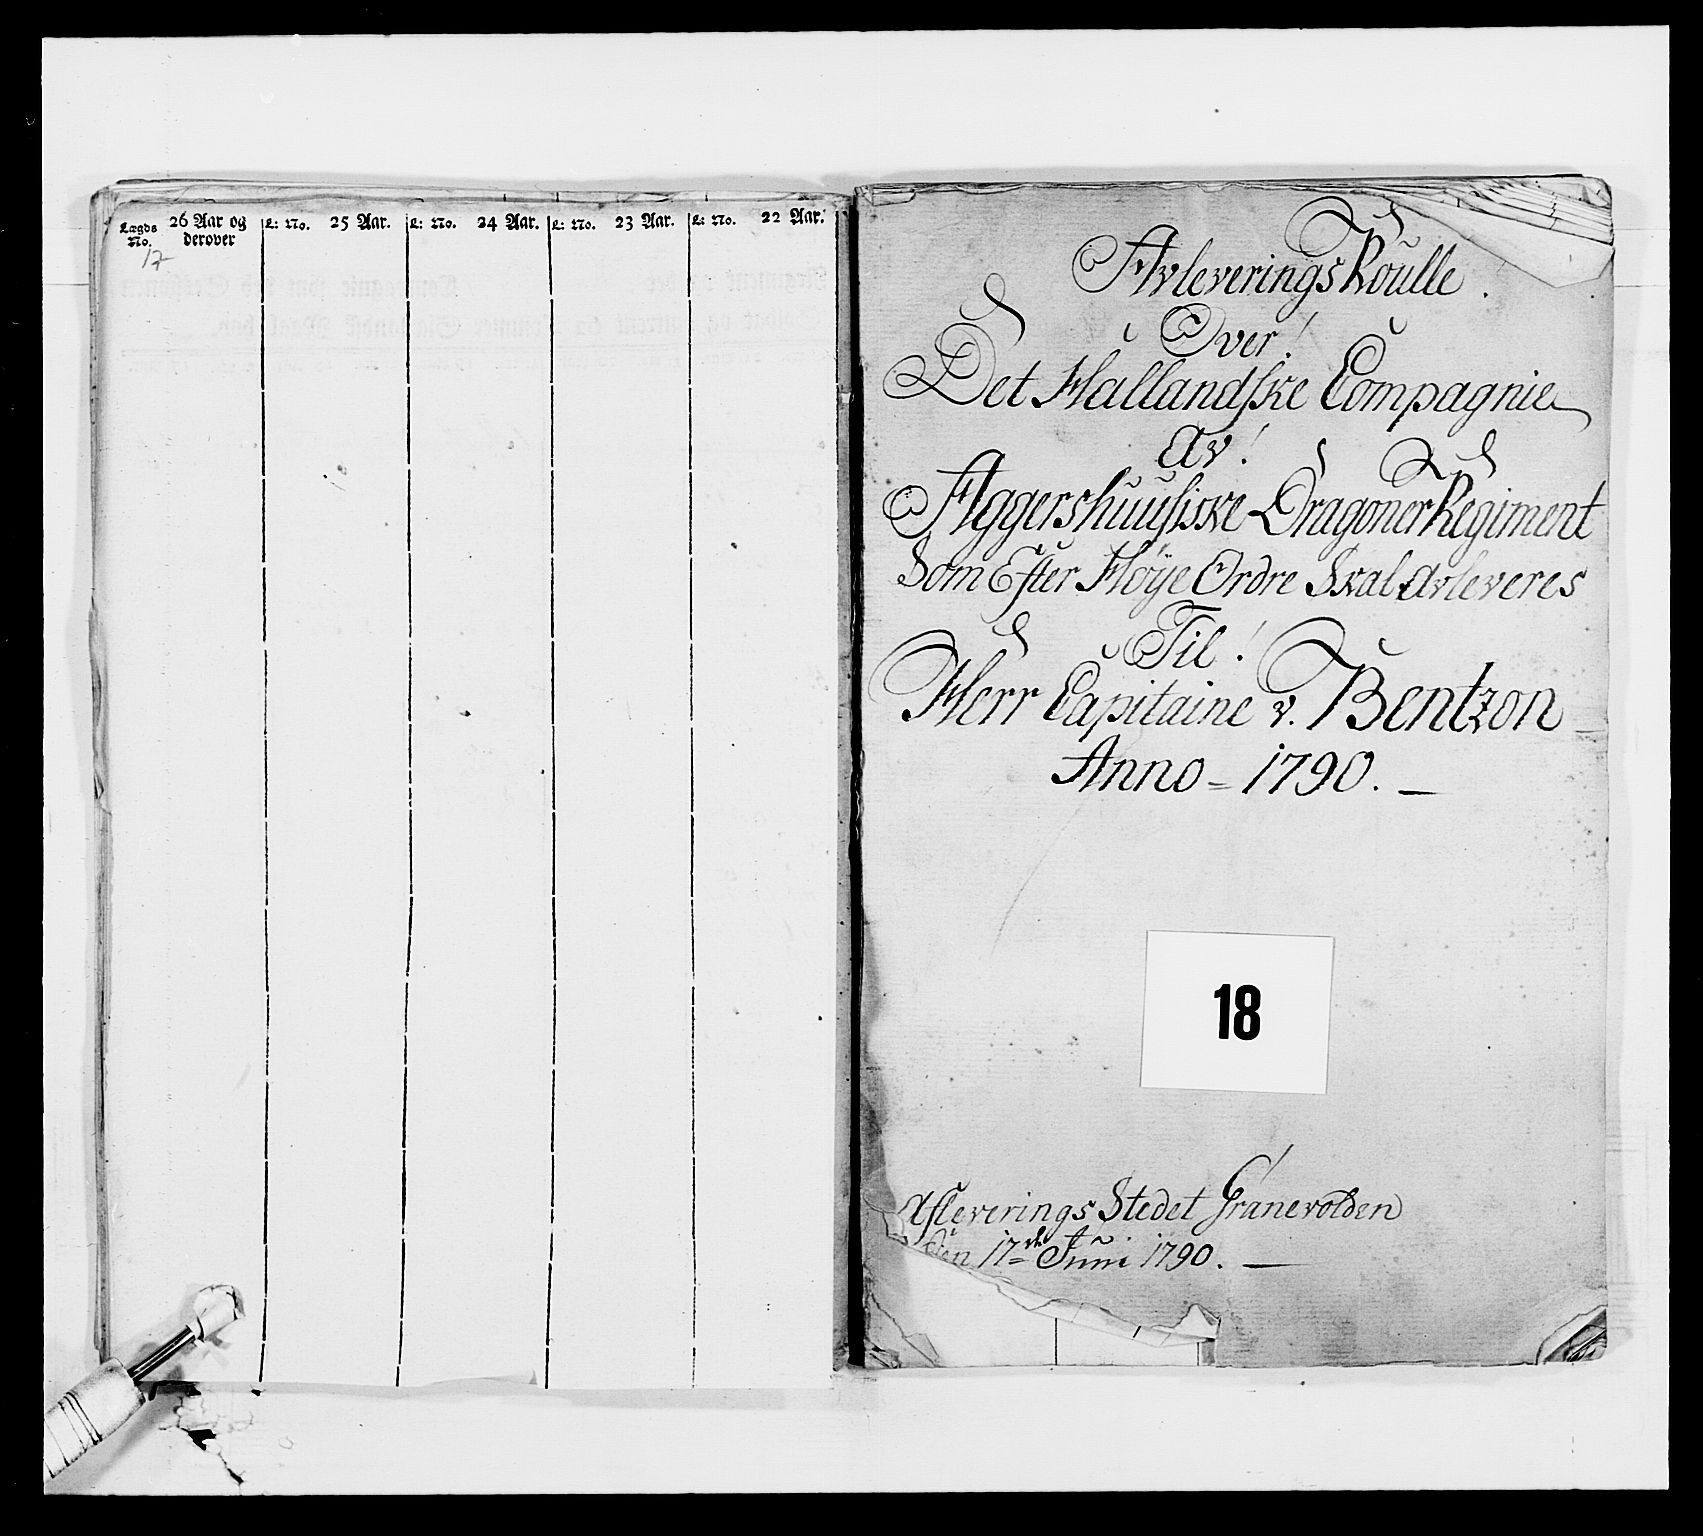 Lægds 26 Aar og L: No. 25 Aar. L: No. 24 Aar. L: No. 23 Aar. L: No. 22 Aar.
No. derover
17
Avleverings Roulle.
Over!
Det Hallandske Compagnie
av!
Aggershuusiske Dragoner Regiment
Som Efter Høye Ordre Skal avleveres
Til!
Herr Capitaine v. Bentzon
Anno = 1790. —
18
Afleverings Stedet Granevolden
den 17de Juni 1790. —